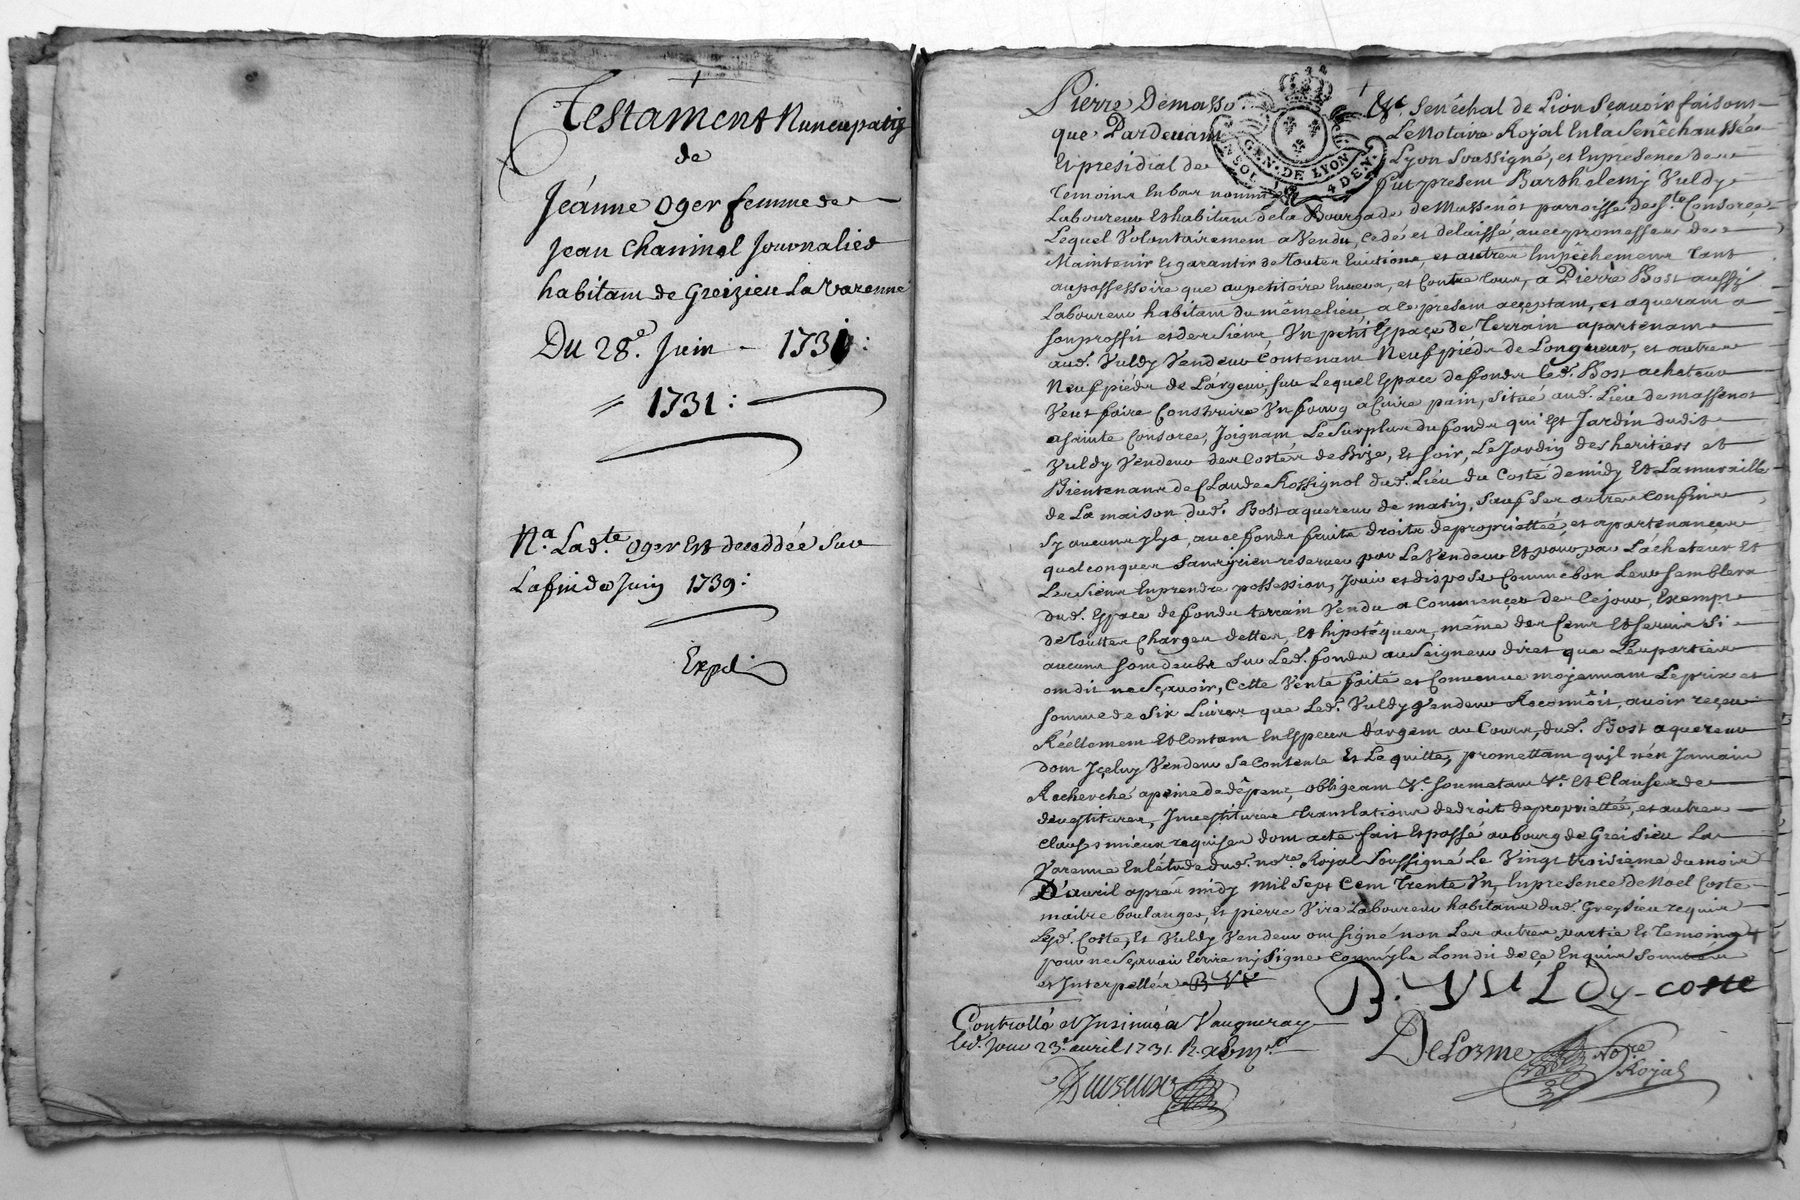 Testament Nuncupatif
de
Jéanne Oger femme de
Jean Chaninel Journalier
habitam de Greizieu La Varenne
Du 28e. Juin - 1731:
1731:
Na. Lad.te Oger Est deceddée Sur
La fin de Juin 1739:
Expd.
Pierre Demasso &c. Senêchal de Lion Sçavoir faisons
que Pardevant Le Notaire Royal En la Senêchaussée
Et presidial de Lyon Soussigné, et En presence des
Temoins En bas nommés fut present Barthelemy Vuldy
Laboureur Et habitam de la Bourgade de Massenôt parroisse de Ste. Consorce
Lequel Volontairement a Vendu, cedé et delaissé, avec promesses de
Maintenir Et garantir de Toutes Evictions, et autres Empêchemens Tant
au possessoire que au petitoire Envers, et Contre Tous, a Pierre Bost aussy
Laboureur habitam du même lieu, a ce présent acceptam, et aqueram a
son proffit et des Siens, Un petit Espaçe de Terrain apartenam
aud. Vuldy Vendeur Contenam Neuf piéds de Longueur, et autres
Neuf piéds de Lárgeur, sur Lequel Espace de fonds led. Bost acheteur
Veut faire Construire Un fourg a Cuire pain, situé aud. Lieu de massenot
a Sainte Consorce, Joignam Le Surplus du fonds qui Est Jardin dudit
Vuldy Vendeur des Costés de Bize, Et soir, Le Jardin des heritiers et
Bientenans de Claude Rossignol dud. Liéu du Costé de midy Et La muraille
de La maison dud. Bost aquereur de matin, Sauf Ses autres Confins
Sy aucuns y a, avec fonds fruits droits de propriettée, et apartenances
quelconques Sans y rien réserver par Le Vendeur Et pour par L'acheteur Et
Les Siens En prendre possession, Jouir et disposer Comme bon Leur Semblera
dud. Espace de fonds terrain Vendu a Commencer de Ce jour, Exempt
de Toutes Charges dettes, Et hipotêques, même des Cens Et Servis Si
aucuns Som deubs Sur Led. fonds au Seigneur diret que Les parties
om dit ne Sçavoir, Cette Vente faite et Convenue mojennam Le prix et
Somme de Six Livres que Led. Vuldy Vendeur Reconnôit, avoir reçeu
Réellement Et Contam En Especes d'argem au Cours, dud. Bost aquereur
dom Içeluy Vendeur Se Contente Et Le quitte, promettam qu'il n'én Jamais
Recherché a peine de dêpens, obligeam &c. Soumetam &c. Et Clauses de
devestitures, Jnvestitures translations de droit de propriettée, et autres
Clauses mieux requises dom acte fait Et passé au bourg de Greisieu La
Varenne En L'étude dud. nore. Rojal Soussigné Le Vingt troisieme du mois
D'avril aprés midy mil Sept Cem Trente Un, En presence de Noel Coste
maitre boulanger, Et pierre Vire Laboureur habitans dud. Greysieu requis
Led. Coste, Et Vuldy Vendeur om Signé non Les autres partie Et Temoing
pour ne Sçavoir Ecrire ny Signer Comm'yls L'om dit de Ce Enquis Sommés
et Interpellés
B. VULDy - coste
Controllé et Insinué a Vaugneray
led. Jour 23e. avril 1731. R.
DeLorme Nore. Rojal
GEN. DE LYON
UN SOL 4 DEN.